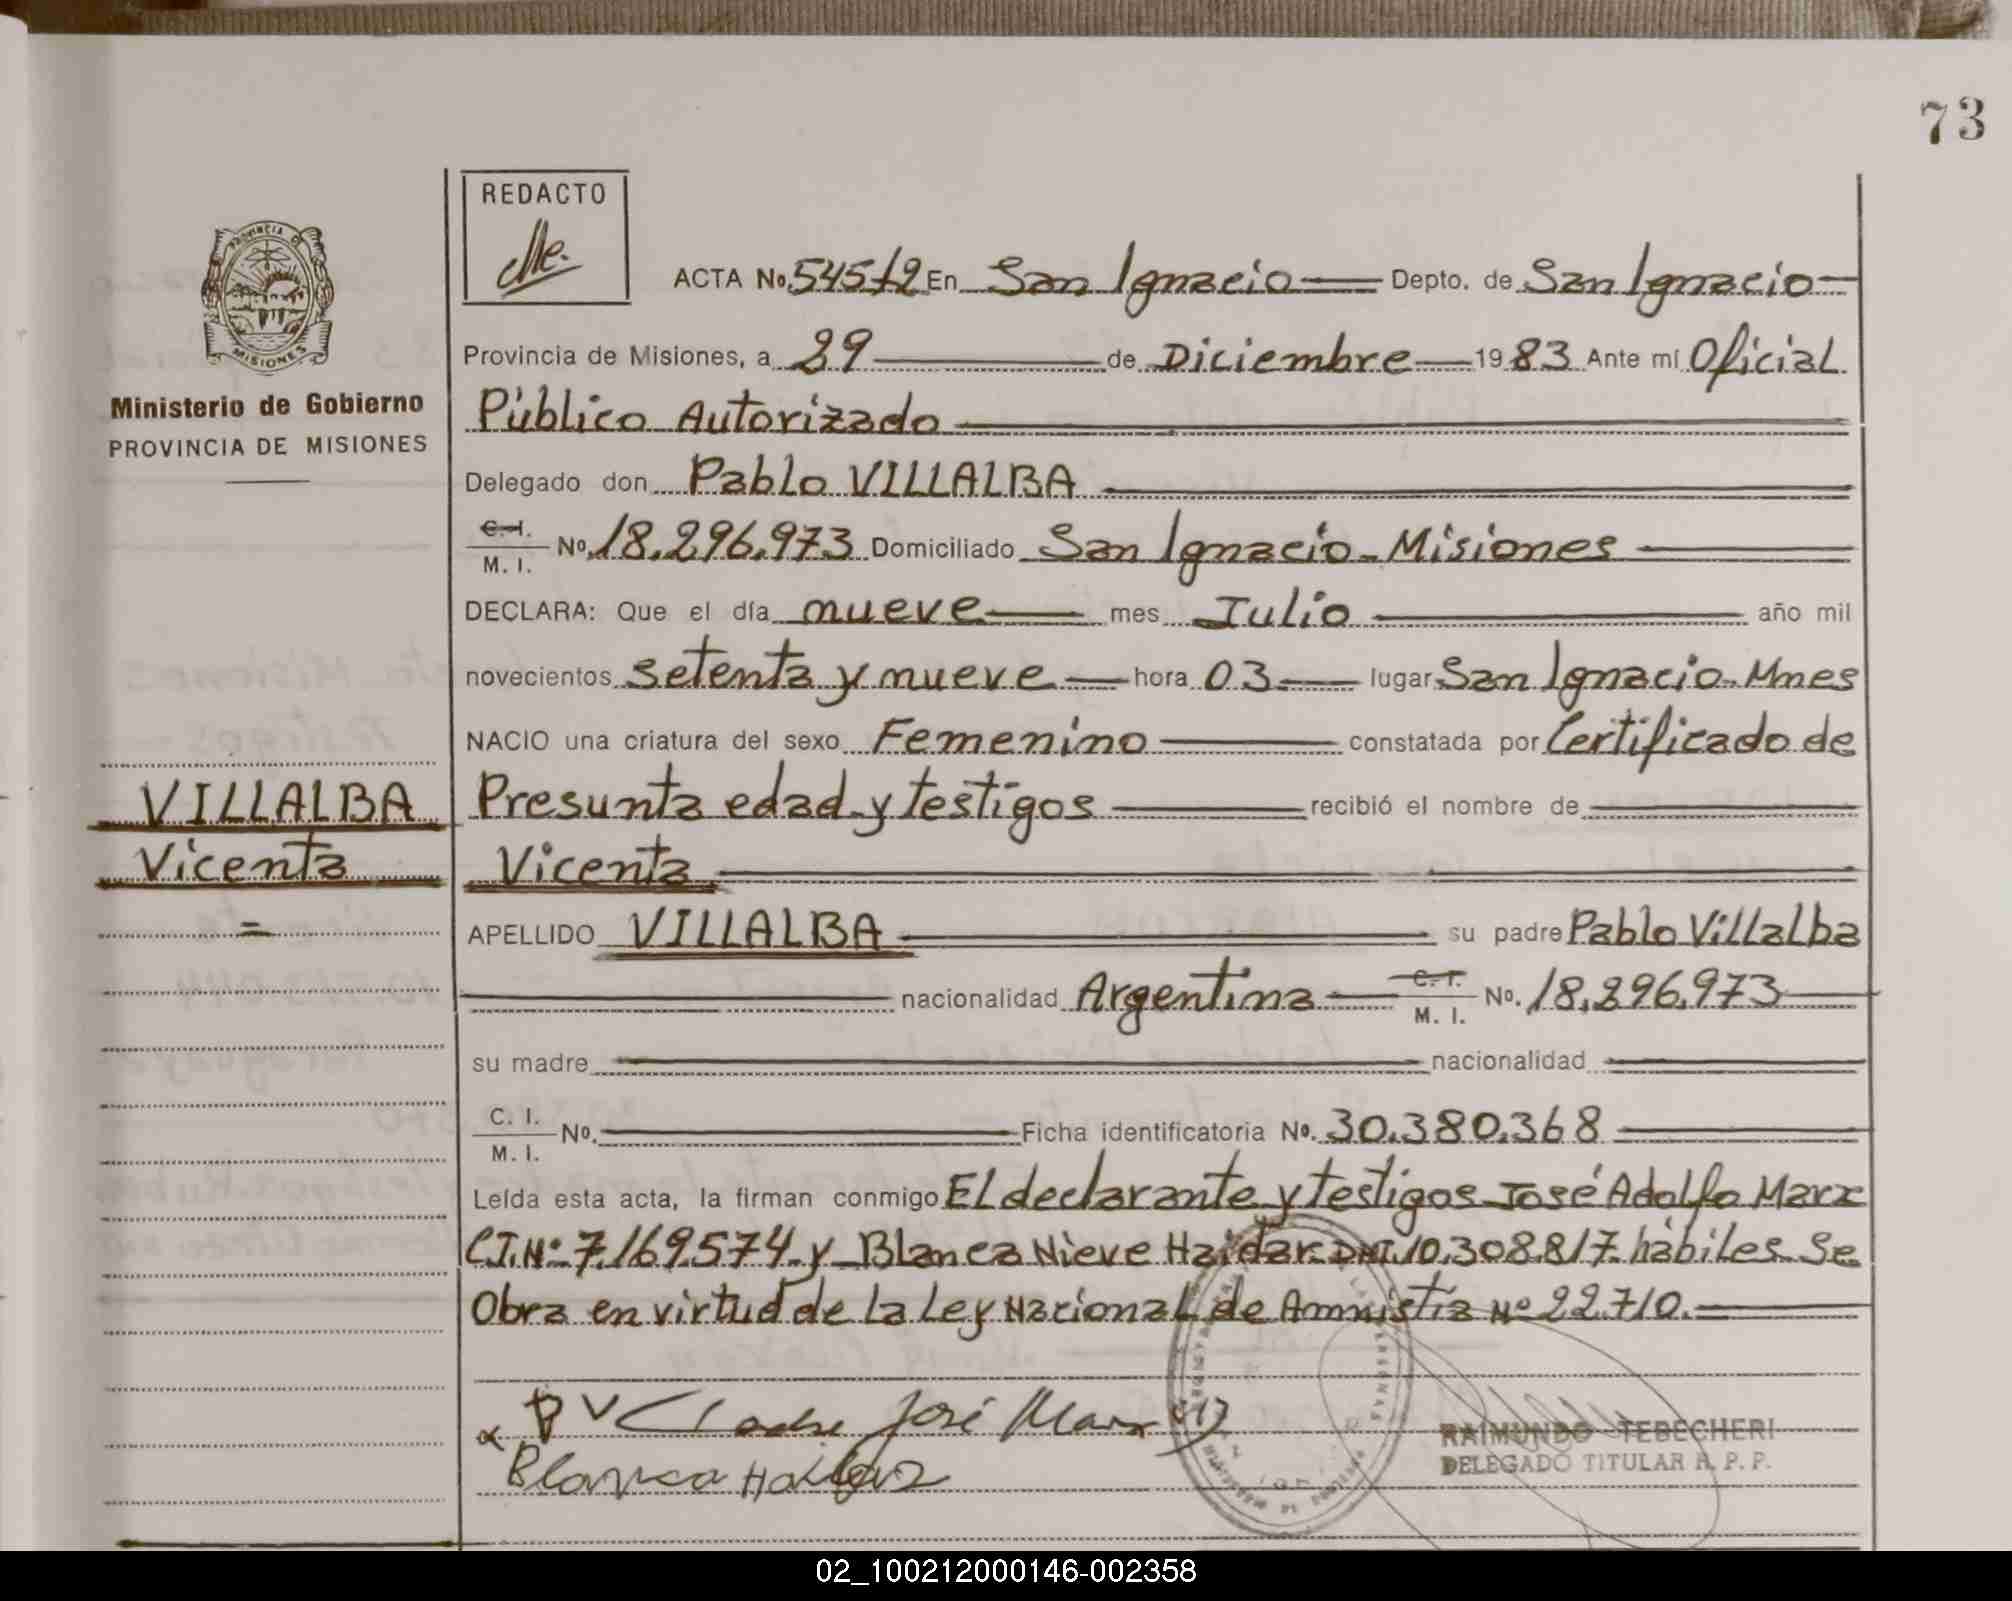 73
REDACTO
ACTA No. 545 t2 En San Ignacio Depto. de San Ignacio
PROVINCIA DE MISIONES
Ministerio de Gobierno
PROVINCIA DE MISIONES
Provincia de Misiones, a 29 de Diciembre 1983 Ante mí Oficial
Público Autorizado
Delegado don Pablo VILLALBA
C. I. / M. I. No. 18.296.973 Domiciliado San Ignacio - Misiones
DECLARA: Que el día nueve mes Julio año mil
novecientos setenta y nueve hora 03 lugar San Ignacio - Mnes
NACIO una criatura del sexo Femenino constatada por Certificado de
Presunta edad y testigos recibió el nombre de
Vicenta
VILLALBA
Vicenta
APELLIDO VILLALBA su padre Pablo Villalba
nacionalidad Argentina C. I. / M. I. No. 18.296.973
su madre nacionalidad
C. I. / M. I. No. Ficha identificatoria No. 30.380.368
Leída esta acta, la firman conmigo El declarante y testigos José Adolfo Marx
C.I. Nº 7.169.574 y Blanca Nieve Haidar DNI 10.308.817 hábiles Se
Obra en virtud de la Ley Nacional de Amnistia Nº 22.710.
P V José Marx
Blanca Haidar
RAIMUNDO TEBECHERI
DELEGADO TITULAR R. P. P.
02_100212000146-002358